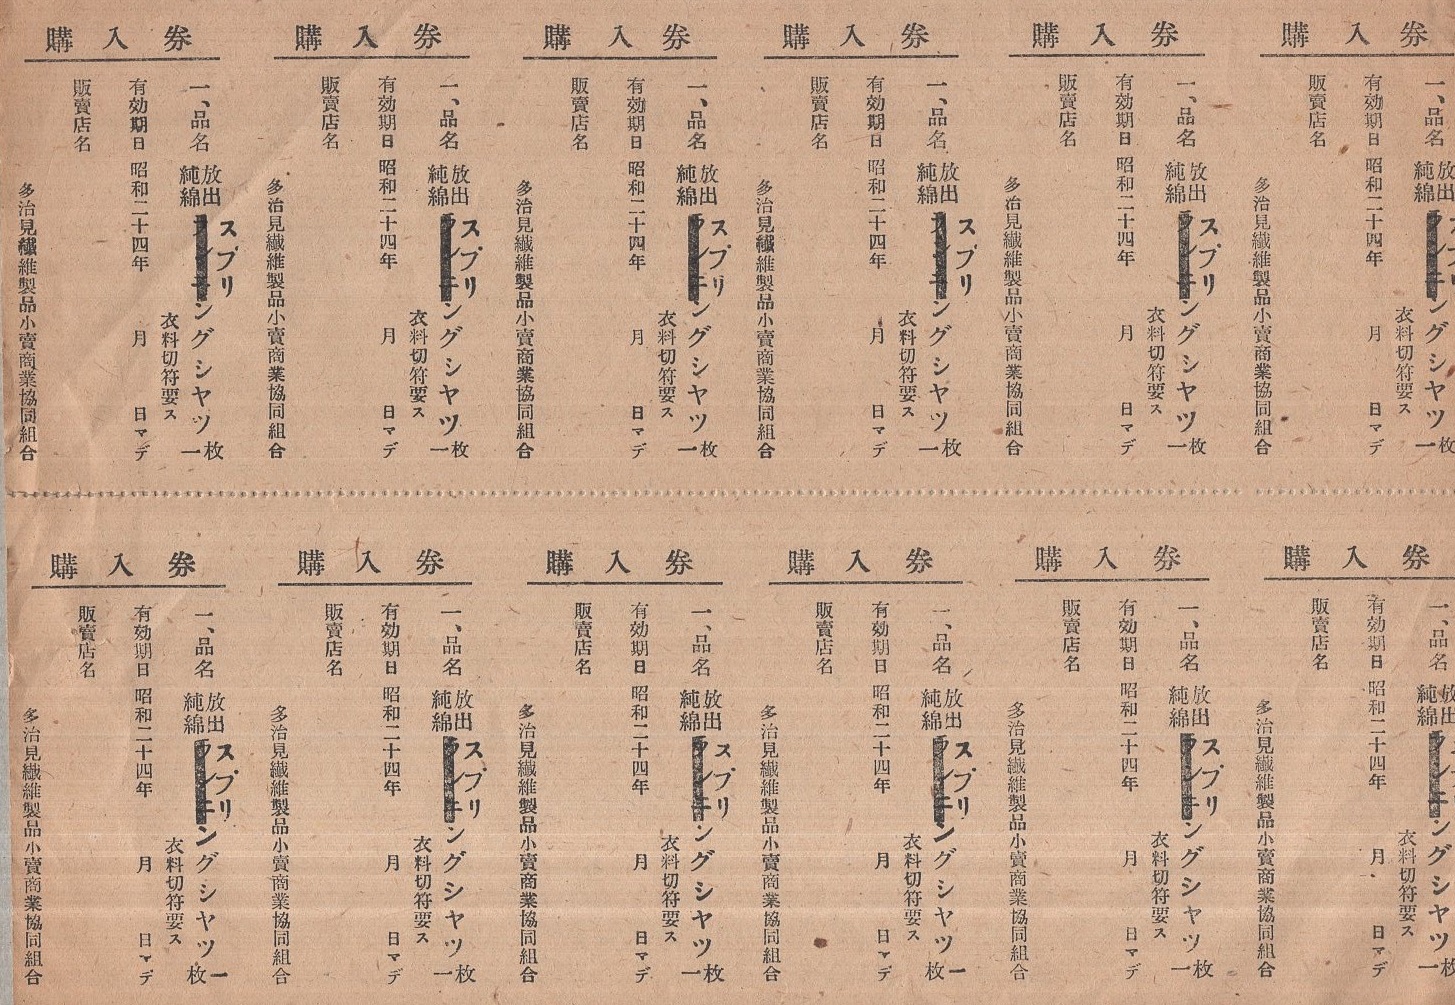 購入券
一、品名 放出純綿 スプリングシヤツ 一枚
衣料切符要ス
有効期日 昭和二十四年 月 日マデ
販賣店名
多治見纖維製品小賣商業協同組合
購入券
一、品名 放出純綿 スプリングシヤツ 一枚
衣料切符要ス
有効期日 昭和二十四年 月 日マデ
販賣店名
多治見纖維製品小賣商業協同組合
購入券
一、品名 放出純綿 スプリングシヤツ 一枚
衣料切符要ス
有効期日 昭和二十四年 月 日マデ
販賣店名
多治見纖維製品小賣商業協同組合
購入券
一、品名 放出純綿 スプリングシヤツ 一枚
衣料切符要ス
有効期日 昭和二十四年 月 日マデ
販賣店名
多治見纖維製品小賣商業協同組合
購入券
一、品名 放出純綿 スプリングシヤツ 一枚
衣料切符要ス
有効期日 昭和二十四年 月 日マデ
販賣店名
多治見纖維製品小賣商業協同組合
購入券
一、品名 放出純綿 スプリングシヤツ 一枚
衣料切符要ス
有効期日 昭和二十四年 月 日マデ
販賣店名
多治見纖維製品小賣商業協同組合
購入券
一、品名 放出純綿 スプリングシヤツ 一枚
衣料切符要ス
有効期日 昭和二十四年 月 日マデ
販賣店名
多治見纖維製品小賣商業協同組合
購入券
一、品名 放出純綿 スプリングシヤツ 一枚
衣料切符要ス
有効期日 昭和二十四年 月 日マデ
販賣店名
多治見纖維製品小賣商業協同組合
購入券
一、品名 放出純綿 スプリングシヤツ 一枚
衣料切符要ス
有効期日 昭和二十四年 月 日マデ
販賣店名
多治見纖維製品小賣商業協同組合
購入券
一、品名 放出純綿 スプリングシヤツ 一枚
衣料切符要ス
有効期日 昭和二十四年 月 日マデ
販賣店名
多治見纖維製品小賣商業協同組合
購入券
一、品名 放出純綿 スプリングシヤツ 一枚
衣料切符要ス
有効期日 昭和二十四年 月 日マデ
販賣店名
多治見纖維製品小賣商業協同組合
購入券
一、品名 放出純綿 スプリングシヤツ 一枚
衣料切符要ス
有効期日 昭和二十四年 月 日マデ
販賣店名
多治見纖維製品小賣商業協同組合